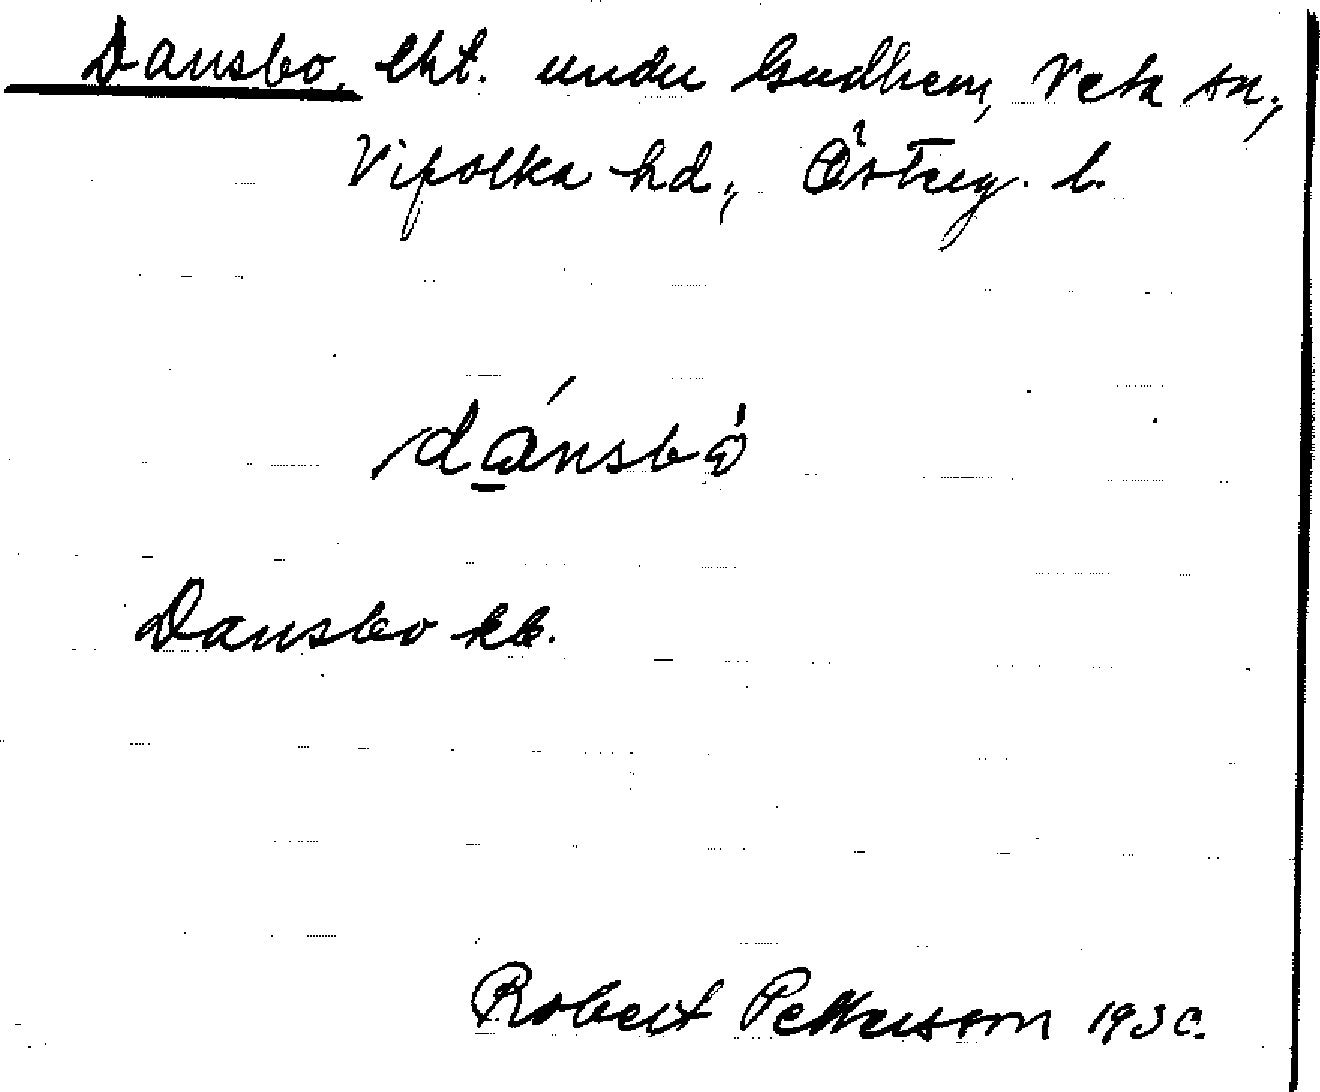 Dansbo, lht. under Gudhem, Veta sn.,
Vifolka hd., Östterg. l.
dánsbo
Dansbo kb.
Robert Petterson 1930.